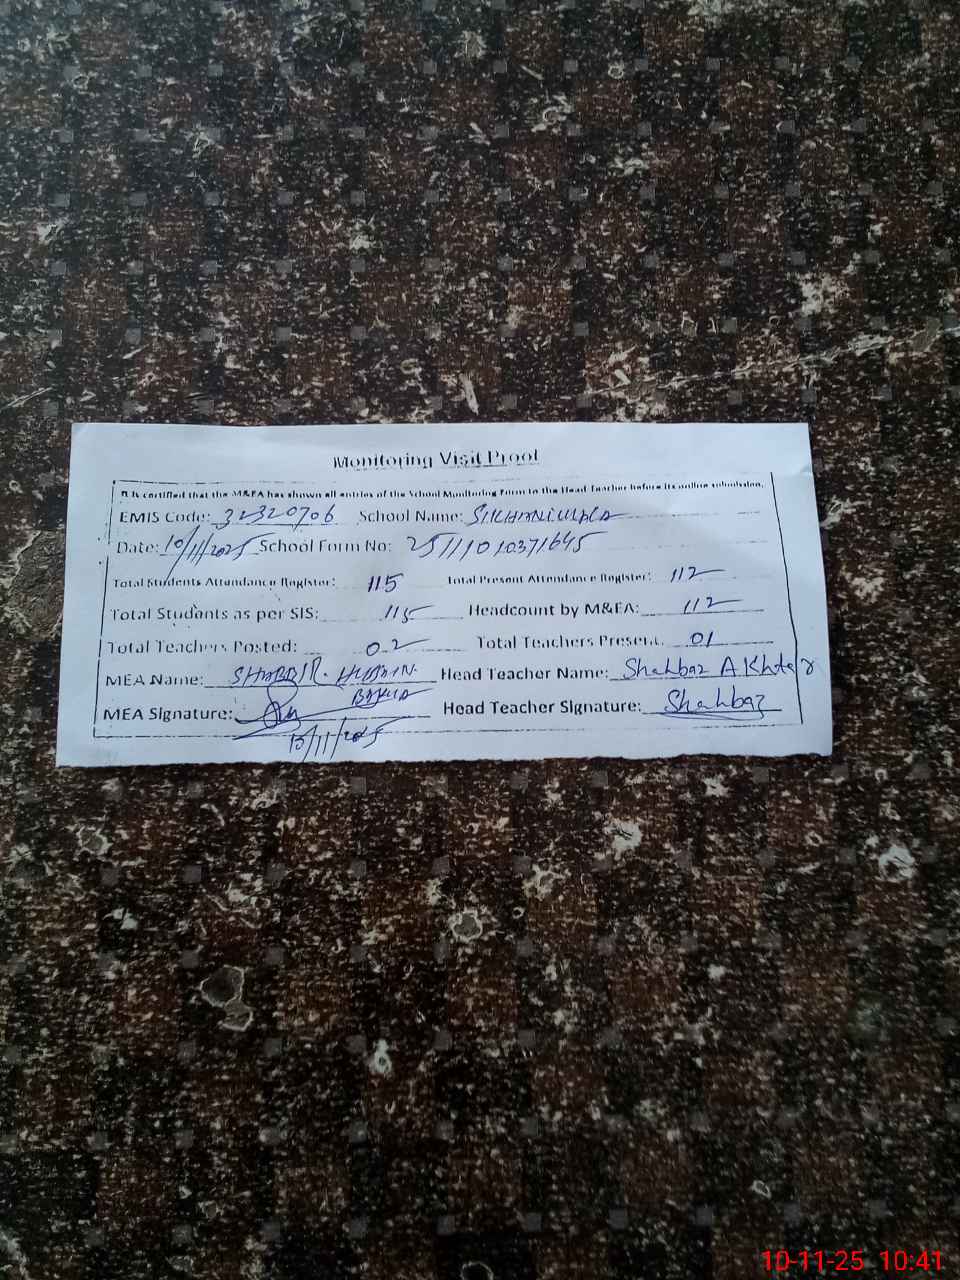 Monitoring Visit Proof
It is certified that the M&EA has shown all entries of the School Monitoring Form to the Head Teacher before its online submission.
EMIS Code: 32320706 School Name:
Date: 10/11/2025 School Form No: 25111010371645
Total Students Attendance Register: 115 Total Present Attendance Register: 112
Total Students as per SIS: 115 Headcount by M&EA: 112
Total Teachers Posted: 02 Total Teachers Present. 01
MEA Name: SHABBIR. HUSSAIN. Head Teacher Name: Shahbaz Akhtar
MEA Signature: Head Teacher Signature: Shahbaz
10/11/2025
10-11-25 10:41